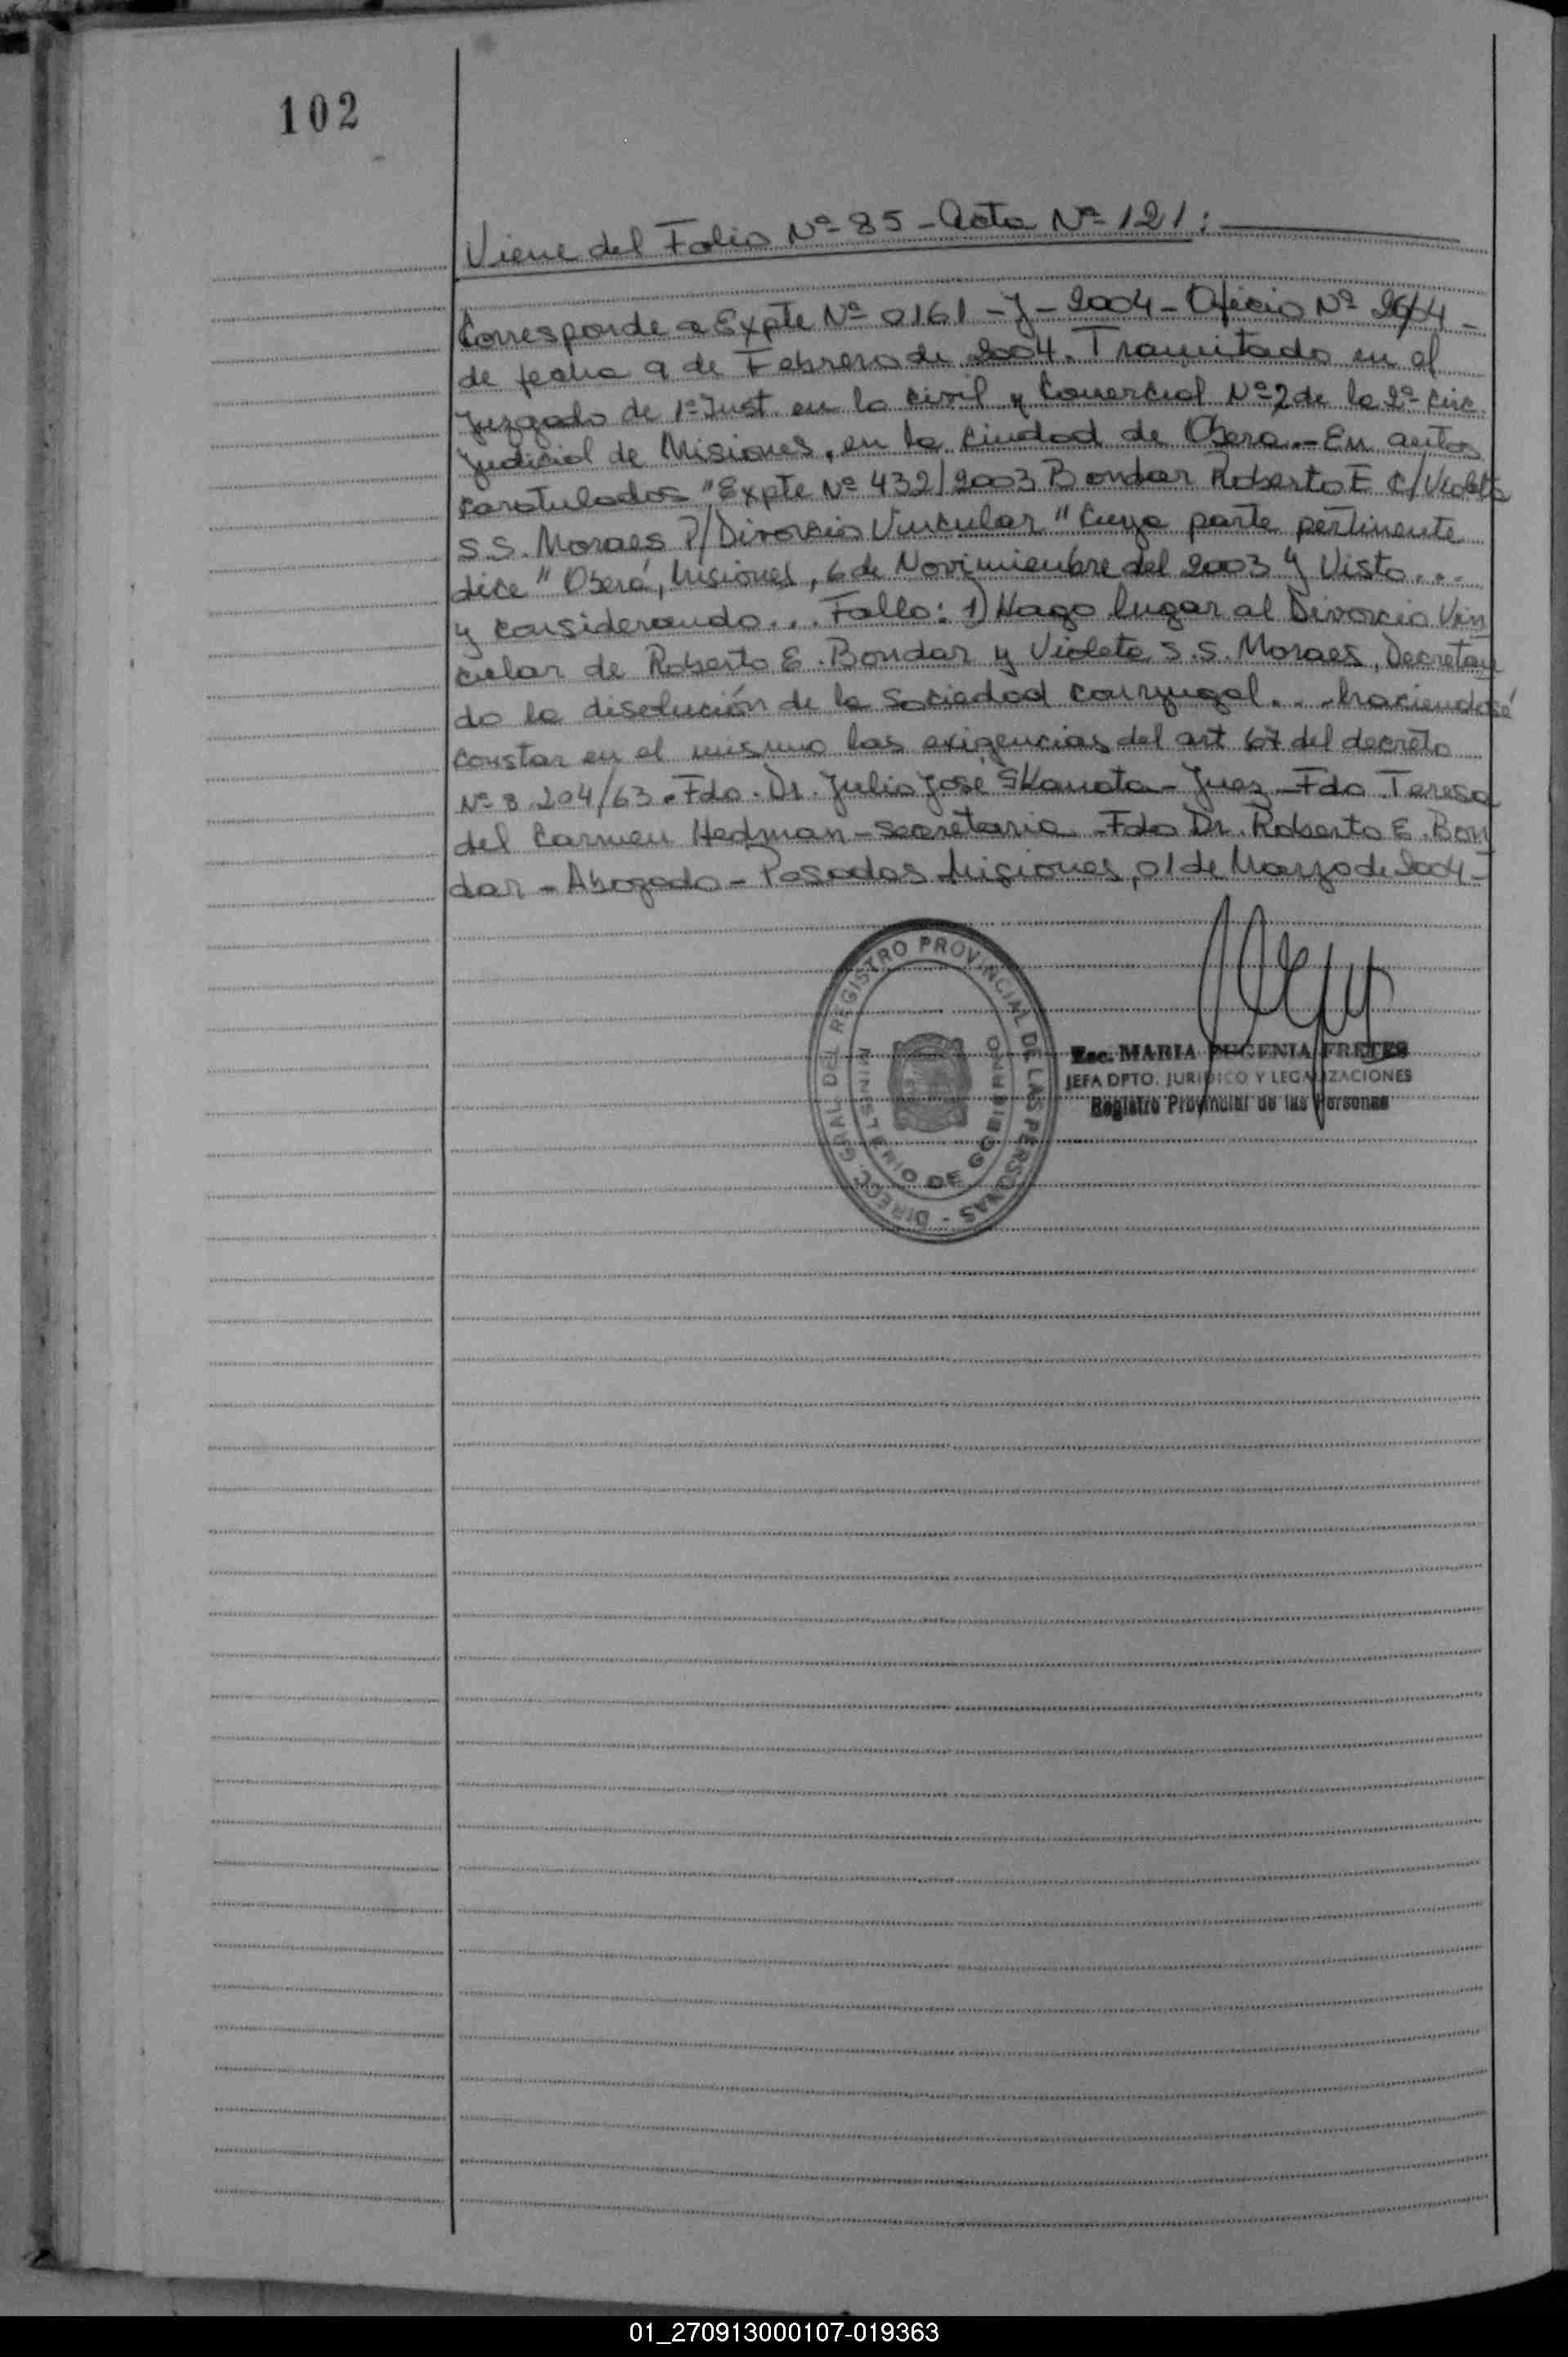 102
Viene del Folio Nº 85 - Acta Nº 121:
Corresponde a Expte Nº 0161 - J - 2004 - Oficio Nº
de fecha 9 de Febrero de 2004. Tramitado en el
Juzgado de 1ª Inst. en lo civil y Comercial Nº 2 de la 2ª circ.
Judicial de Misiones, en la Ciudad de Obera.- En autos
caratulados "Expte Nº 432/2003 Bondar Roberto E c/ Violeta
S.S. Moraes P/Divorcio Vincular" Cuya parte pertinente
dice "Oberá, Misiones, 6 de Novimiembre del 2003 y Visto...
y considerando... Fallo: 1) Hago lugar al Divorcio Vin
cular de Roberto E. Bondar y Violeta S.S. Moraes, Decretan
do la disolución de la Sociedad conyugal... haciendosé
constar en el mismo las exigencias del art 67 del decreto
Nº 8.204/63. Fdo. Dr. Julio José Skanata - Juez - Fdo. Teresa
del Carmen Hedman - secretaria - Fdo Dr. Roberto E. Bon
dar - Abogado - Posadas Misiones, 01 de Marzo de 2004 -
DIRECC. GRAL. DEL REGISTRO PROVINCIAL DE LAS PERSONAS -
MINISTERIO DE GOBIERNO
Esc. MARIA EUGENIA FRETES
JEFA DPTO. JURIDICO Y LEGALIZACIONES
Registro Provincial de las Personas
01_270913000107-019363